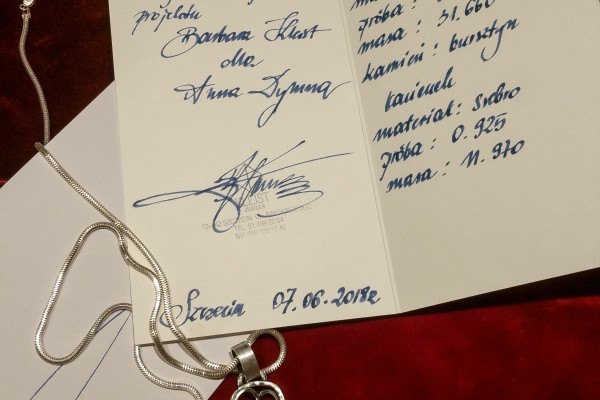 projektu
Barbara Kleist
dla
Anna Dymna
KLEIST
JUBILER
Szczecin 07.06.2018r
próba:
masa: 31.660
kamień: bursztyn
łańcuszek
materiał: srebro
próba: 0.925
masa: 11.970